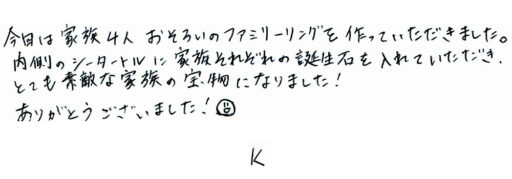 今日は家族4人おそろいのファミリーリングを作っていただきました。
内側のシータートルに家族それぞれの誕生石を入れていただき、
とても素敵な家族の宝物になりました!
ありがとうございました!
K